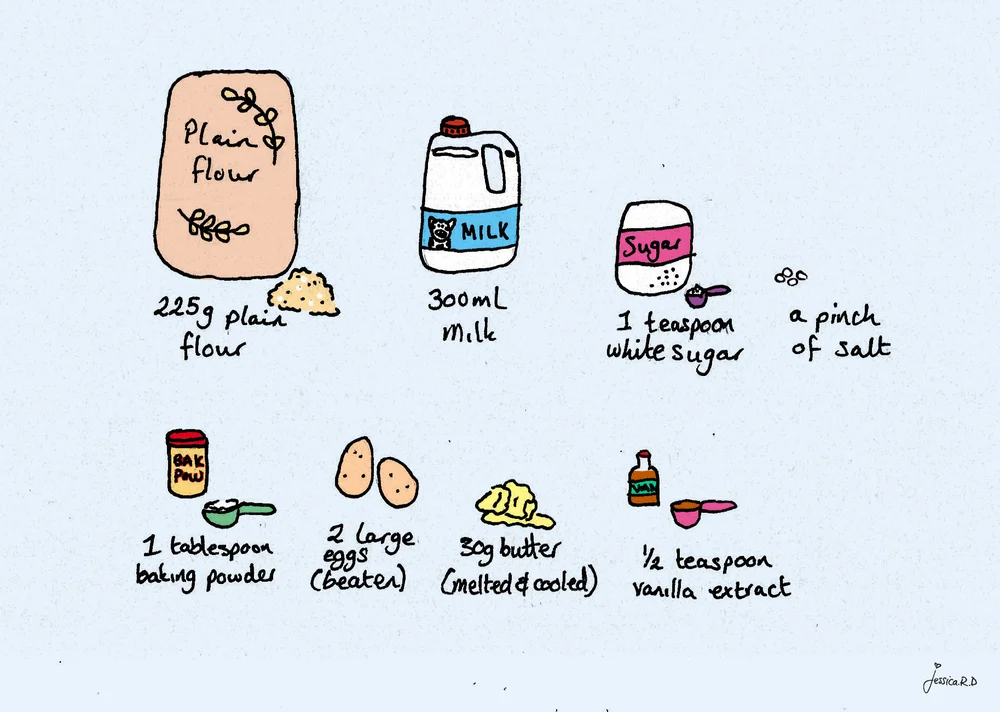 Plain
flour
225g plain
flour
MILK
300mL
milk
Sugar
1 teaspoon
white sugar
a pinch
of salt
BAK
POW
1 tablespoon
baking powder
2 large
eggs
(beaten)
30g butter
(melted & cooled)
VAN
½ teaspoon
vanilla extract
Jessica.R.D